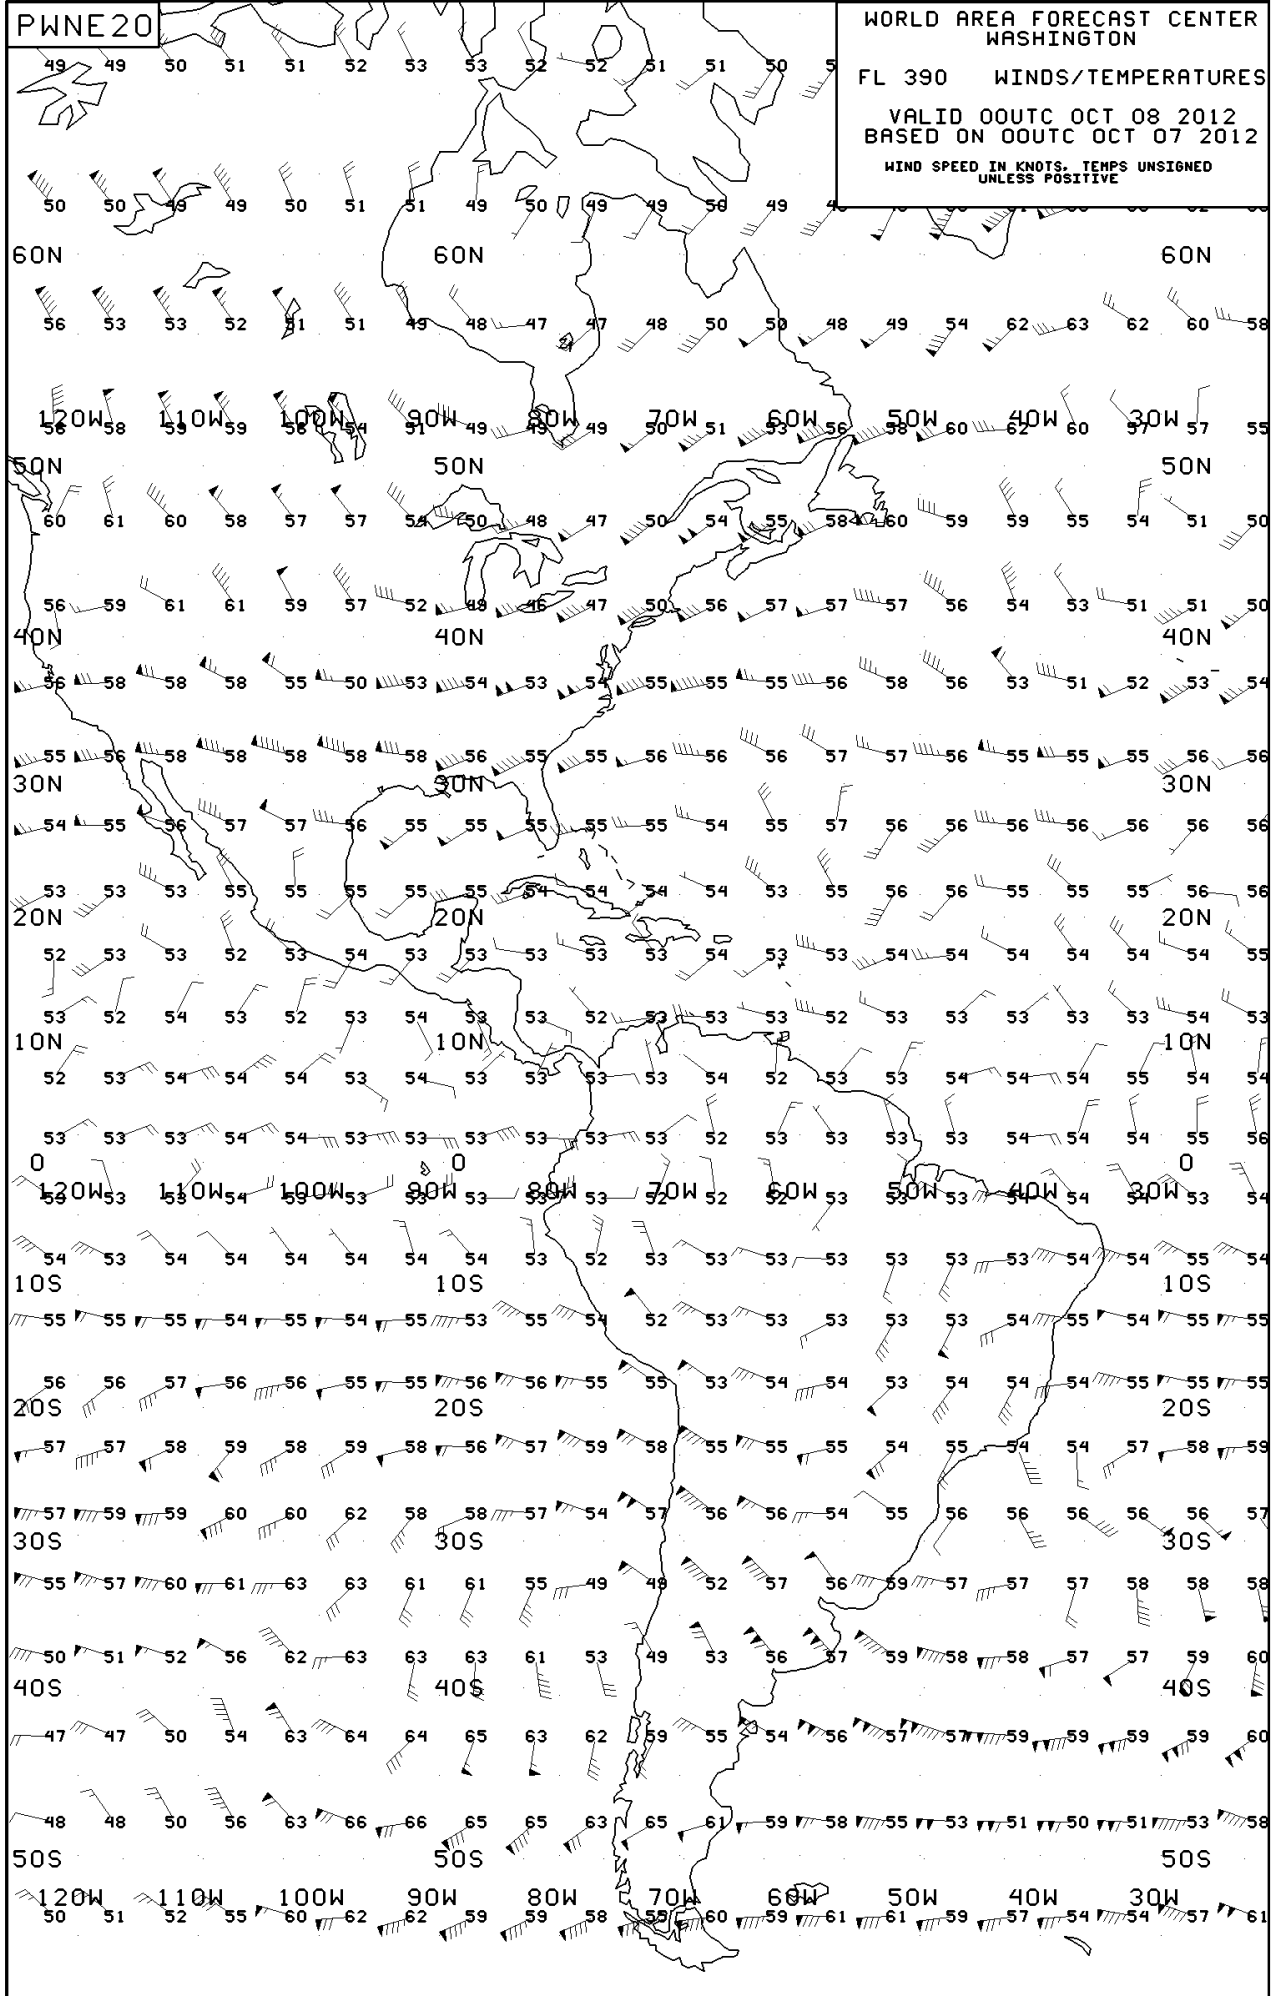 PWNE20
WORLD AREA FORECAST CENTER
WASHINGTON
FL 390 WINDS/TEMPERATURES
VALID 00UTC OCT 08 2012
BASED ON 00UTC OCT 07 2012
WIND SPEED IN KNOTS, TEMPS UNSIGNED
UNLESS POSITIVE
49 49 50 51 51 52 53 53 52 52 51 51 50
50 50 49 49 50 51 51 49 50 49 49 50 49
60N 60N 60N
56 53 53 52 51 51 49 48 47 47 48 50 50 48 49 54 62 63 62 60 58
120W 110W 100W 90W 80W 70W 60W 50W 40W 30W
56 58 59 59 56 54 51 49 49 49 50 51 53 56 58 60 62 60 57 57 55
50N 50N 50N
60 61 60 58 57 57 54 50 48 47 50 54 55 58 60 59 59 55 54 51 50
56 59 61 61 59 57 52 49 46 47 50 56 57 57 57 56 54 53 51 51 50
40N 40N 40N
56 58 58 58 55 50 53 54 53 54 55 55 55 56 58 56 53 51 52 53 54
55 56 58 58 58 58 58 56 55 55 56 56 56 57 57 56 55 55 55 56 56
30N 30N 30N
54 55 56 57 57 56 55 55 55 55 55 54 55 57 56 56 56 56 56 56 56
53 53 53 55 55 55 55 55 54 54 54 54 53 55 56 56 55 55 55 56 56
20N 20N 20N
52 53 53 52 53 54 53 53 53 53 53 54 53 53 54 54 54 54 54 54 55
53 52 54 53 52 53 54 53 53 52 53 53 53 52 53 53 53 53 53 54 53
10N 10N 10N
52 53 54 54 54 53 54 53 53 53 53 54 52 53 53 54 54 54 55 54 54
53 53 53 54 54 53 53 53 53 53 53 52 53 53 53 53 54 54 54 55 56
0 0 0
120W 110W 100W 90W 80W 70W 60W 50W 40W 30W
53 53 53 54 53 53 53 53 53 53 52 52 52 53 53 53 54 54 54 53 54
54 53 54 54 54 54 54 54 53 52 53 53 53 53 53 53 53 54 54 55 54
10S 10S 10S
55 55 55 54 55 54 55 53 55 54 52 53 53 53 53 53 54 55 54 55 55
56 56 57 56 56 55 55 56 56 55 55 53 54 54 53 54 54 54 55 55 55
20S 20S 20S
57 57 58 59 58 59 58 56 57 59 58 55 55 55 54 55 54 54 57 58 59
57 59 59 60 60 62 58 58 57 54 57 56 56 54 55 56 56 56 56 56 57
30S 30S 30S
55 57 60 61 63 63 61 61 55 49 49 52 57 56 59 57 57 57 58 58 58
50 51 52 56 62 63 63 63 61 53 49 53 56 57 59 58 58 57 57 59 60
40S 40S 40S
47 47 50 54 63 64 64 65 63 62 59 55 54 56 57 57 59 59 59 59 60
48 48 50 56 63 66 66 65 65 63 65 61 59 58 55 53 51 50 51 53 58
50S 50S 50S
120W 110W 100W 90W 80W 70W 60W 50W 40W 30W
50 51 52 55 60 62 62 59 59 58 55 60 59 61 61 59 57 54 54 57 61